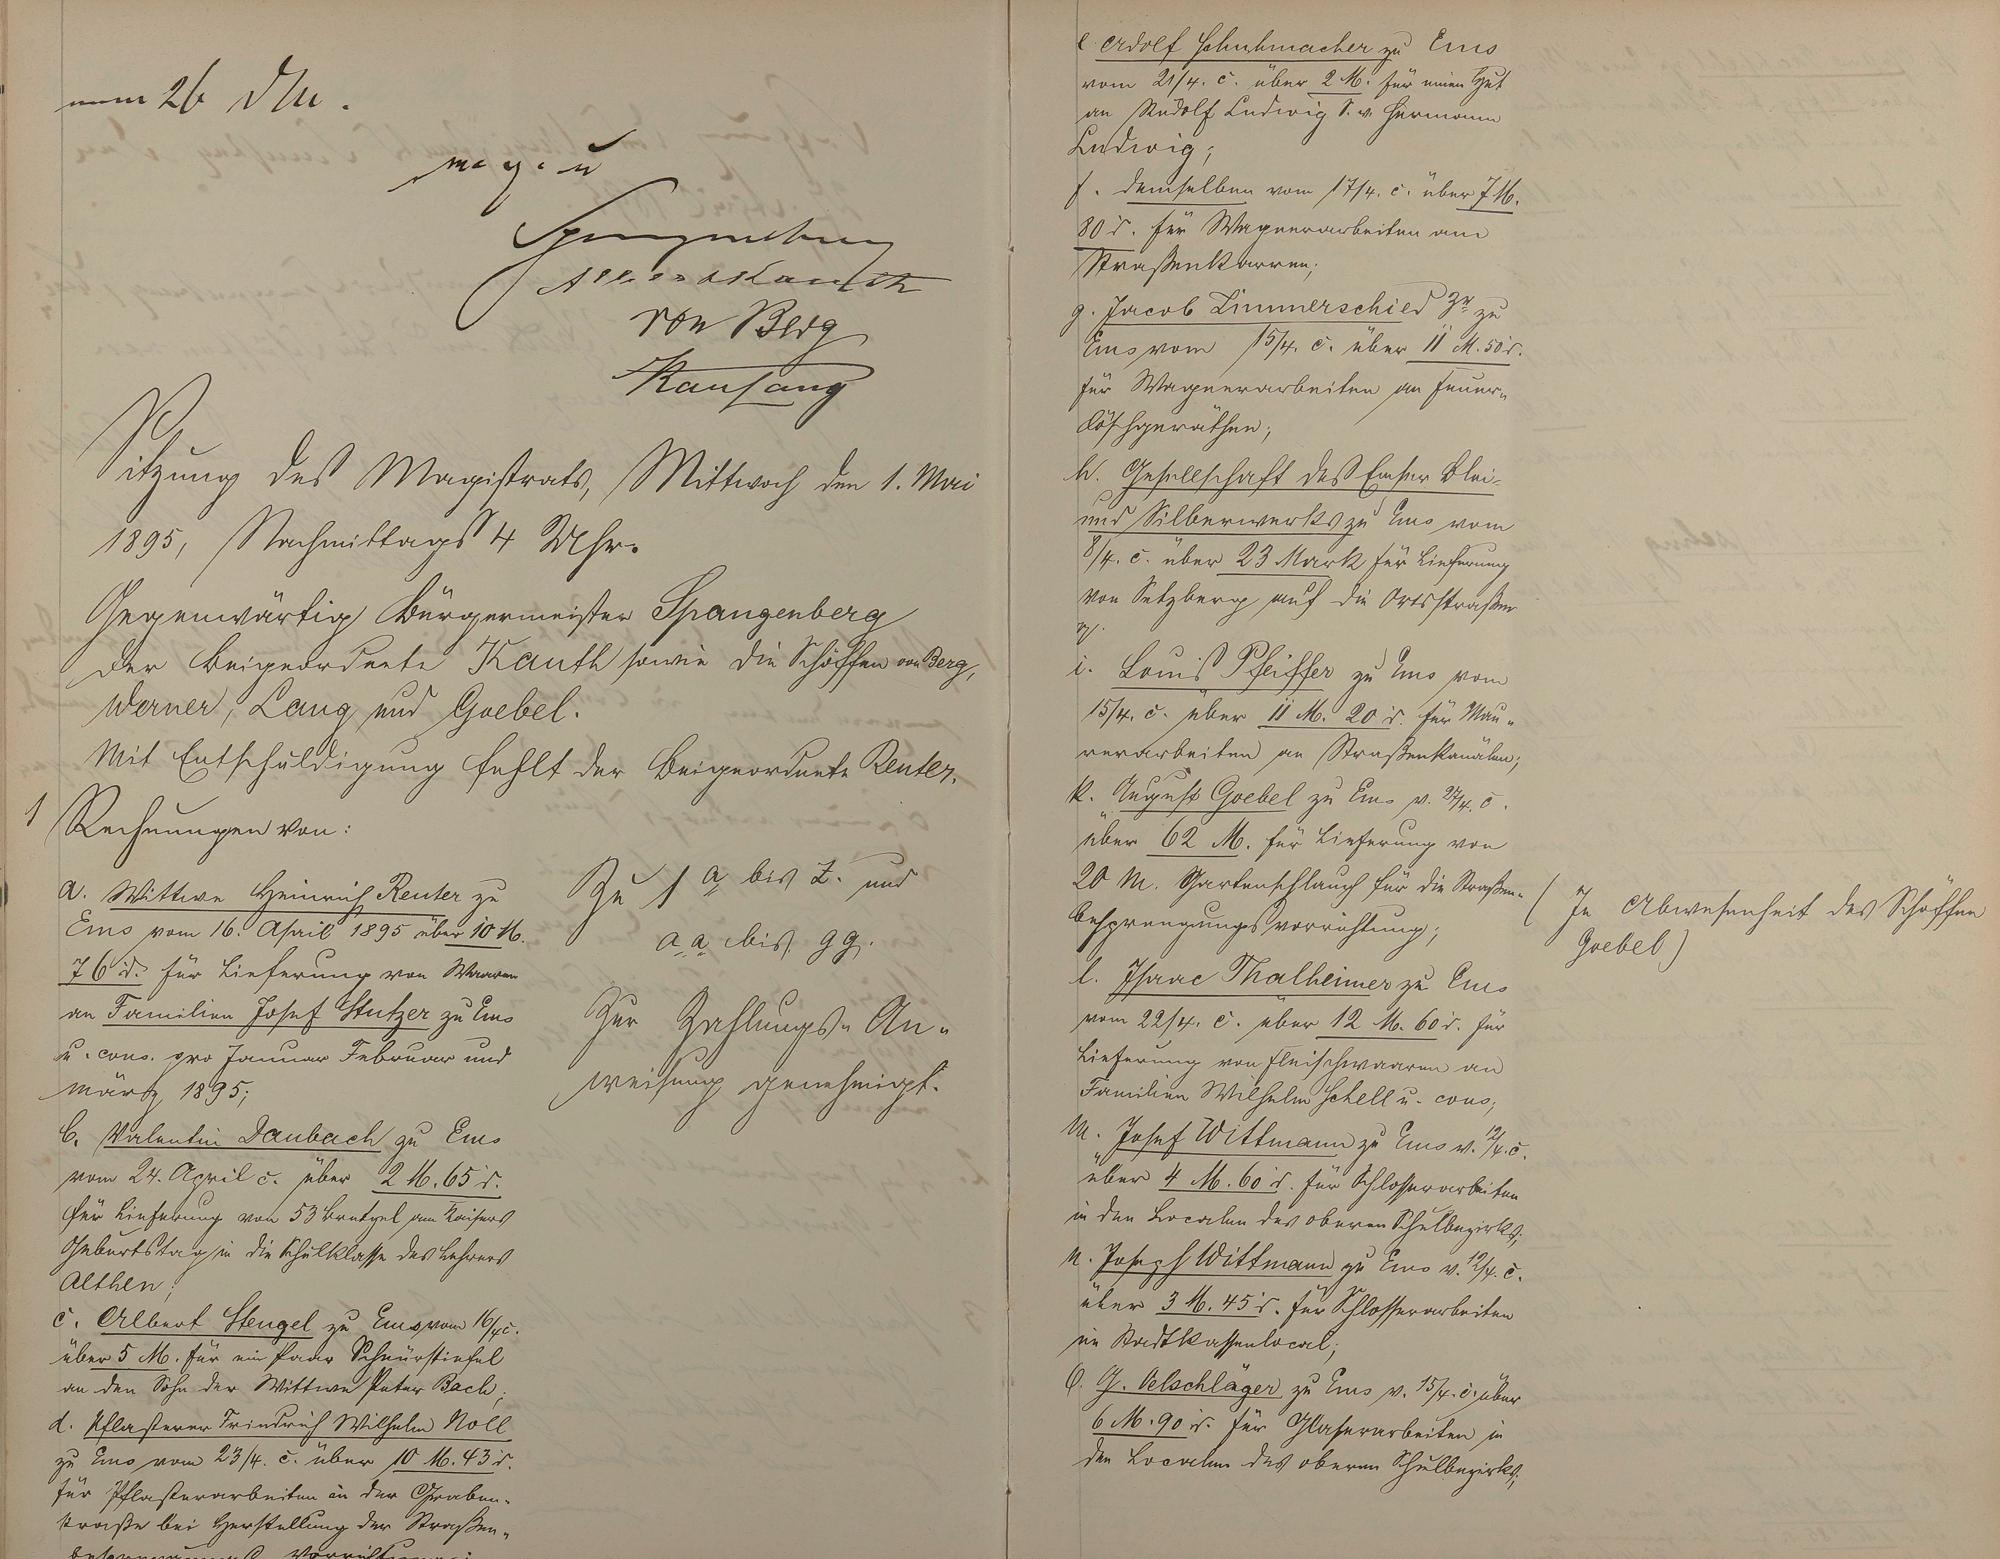 v. g. u.
Spangenberg
Kauth
von Berg
Lang
Sitzung des Magistrats, Mittwoch den 1. Mai
1895, Nachmittags 4 Uhr.
Gegenwärtig Bürgermeister Spangenberg
der Beigeordnete Kauth sowie die Schöffen von Berg,
Werner, Lang und Goebel.
Mit Entschuldigung fehlt der Beigeordnete Reuter.
1 Rechnungen von:
a. Wittwe Heinrich Reuter zu
Ems vom 16. April 1895 über 10 M.
76 d. für Lieferung von Waaren
an Familien Josef Stutzer zu Ems
u. cons. pro Januar Februar und
März 1895;
b. Valentin Daubach zu Ems
vom 24. April c. über 2 M. 65 d.
für Lieferung von 53 Bretzel am Kaisers
Geburtstag in die Schulklasse des Lehrers
Althen;
c. Albert Stengel zu Ems vom 16/4 c.
über 5 M. für ein Paar Schnürstiefel
an den Sohn der Wittwe Peter Bach;
d. Pflasterer Friedrich Wilhelm Noll
zu Ems vom 23/4. c. über 10 M. 43 d.
für Pflasterarbeiten in der Graben-
straße bei Herstellung der Straßen-
besprengungs Vorrichtung;
Zu 1 a bis z. und
a a bis gg.
Zur Zahlungs-An-
weisung genehmigt.
e Adolf Schuhmacher zu Ems
vom 21/4. c. über 2 M. für einen Hut
an Rudolf Ludwig S. v. Hermann
Ludwig;
f. demselben vom 17/4. c. über 7 M.
80 d. für Wagnerarbeiten am
Straßenkarren;
g. Jacob Linnerschied 3r zu
Ems vom 15/4. c. über 11 M. 50 d.
für Wagnerarbeiten an Feuer-
löschgeräthen;
h. Gesellschaft des Emser Blei-
und Silberwerks zu Ems vom
8/4. c. über 23 Mark für Lieferung
von Setzberg auf die Ortsstraßen
i. Louis Pfeiffer zu Ems vom
15/4. c. über 11 M. 20 d. für Mau-
rerarbeiten an Straßenkanälen;
k. August Goebel zu Ems v. 27/4. c.
über 62 M. für Lieferung von
20 M. Gartenschlauch für die Straßen-
besprengungsvorrichtung;
(In Abwesenheit des Schöffen
Goebel)
l. Isaac Thalheimer zu Ems
vom 22/4. c. über 12 M. 60 d. für
Lieferung von Fleischwaaren an
Familien Wilhelm Schell u. cons;
m. Josef Wittmann zu Ems v. 12/4. c.
über 4 M. 60 d. für Schlosserarbeiten
in den Localen des oberen Schulbezirks;
n. Joseph Wittmann zu Ems v. 12/4. c.
über 3 M. 45 d. für Schlosserarbeiten
im Stadtkassenlocal;
o. G. Oelschläger zu Ems v. 15/4. c. über
6 M. 90 d. für Glaserarbeiten in
den Localen des oberen Schulbezirks;